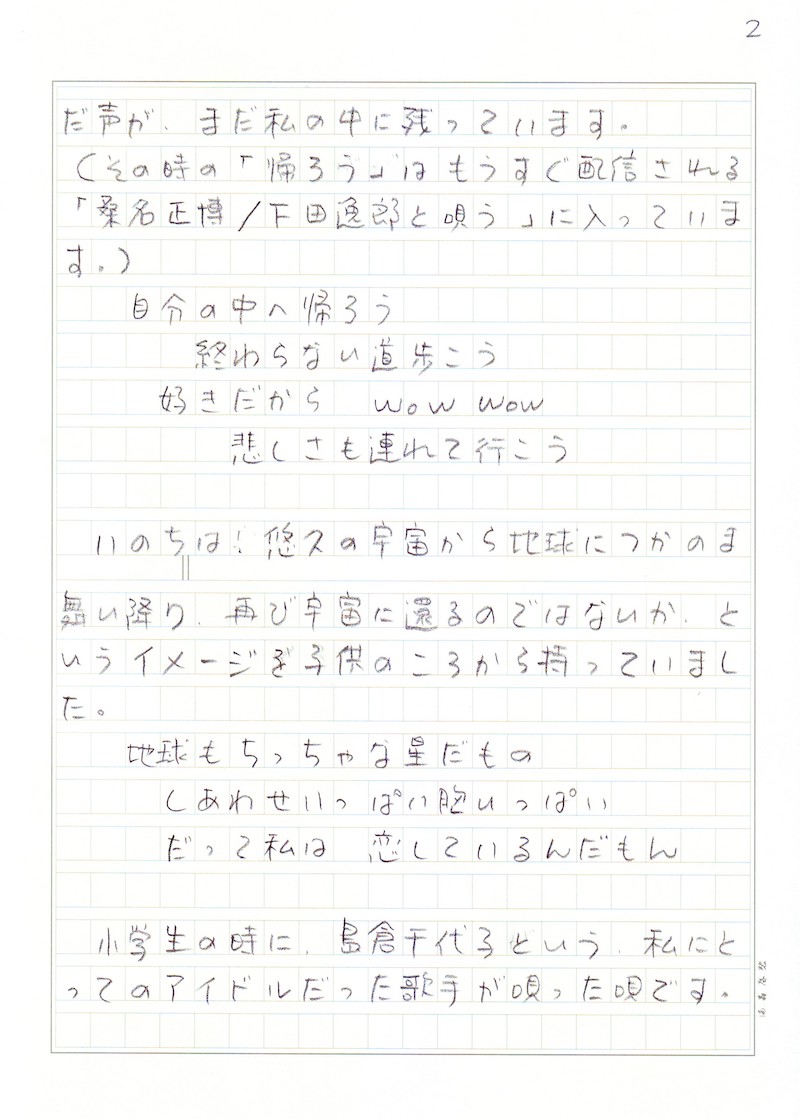 2
だ声が、まだ私の中に残っています。
(その時の「帰ろう」はもうすぐ配信される
「桑名正博/下田逸郎と唄う」に入っていま
す。)
自分の中へ帰ろう
終わらない道歩こう
好きだから wow wow
悲しさも連れて行こう
いのちは、悠久の宇宙から地球につかのま
舞い降り、再び宇宙に還るのではないか、と
いうイメージを子供のころから持っていまし
た。
地球もちっちゃな星だもの
しあわせいっぱい胸いっぱい
だって私は 恋しているんだもん
小学生の時に、島倉千代子という、私にと
ってのアイドルだった歌手が唄った唄です。